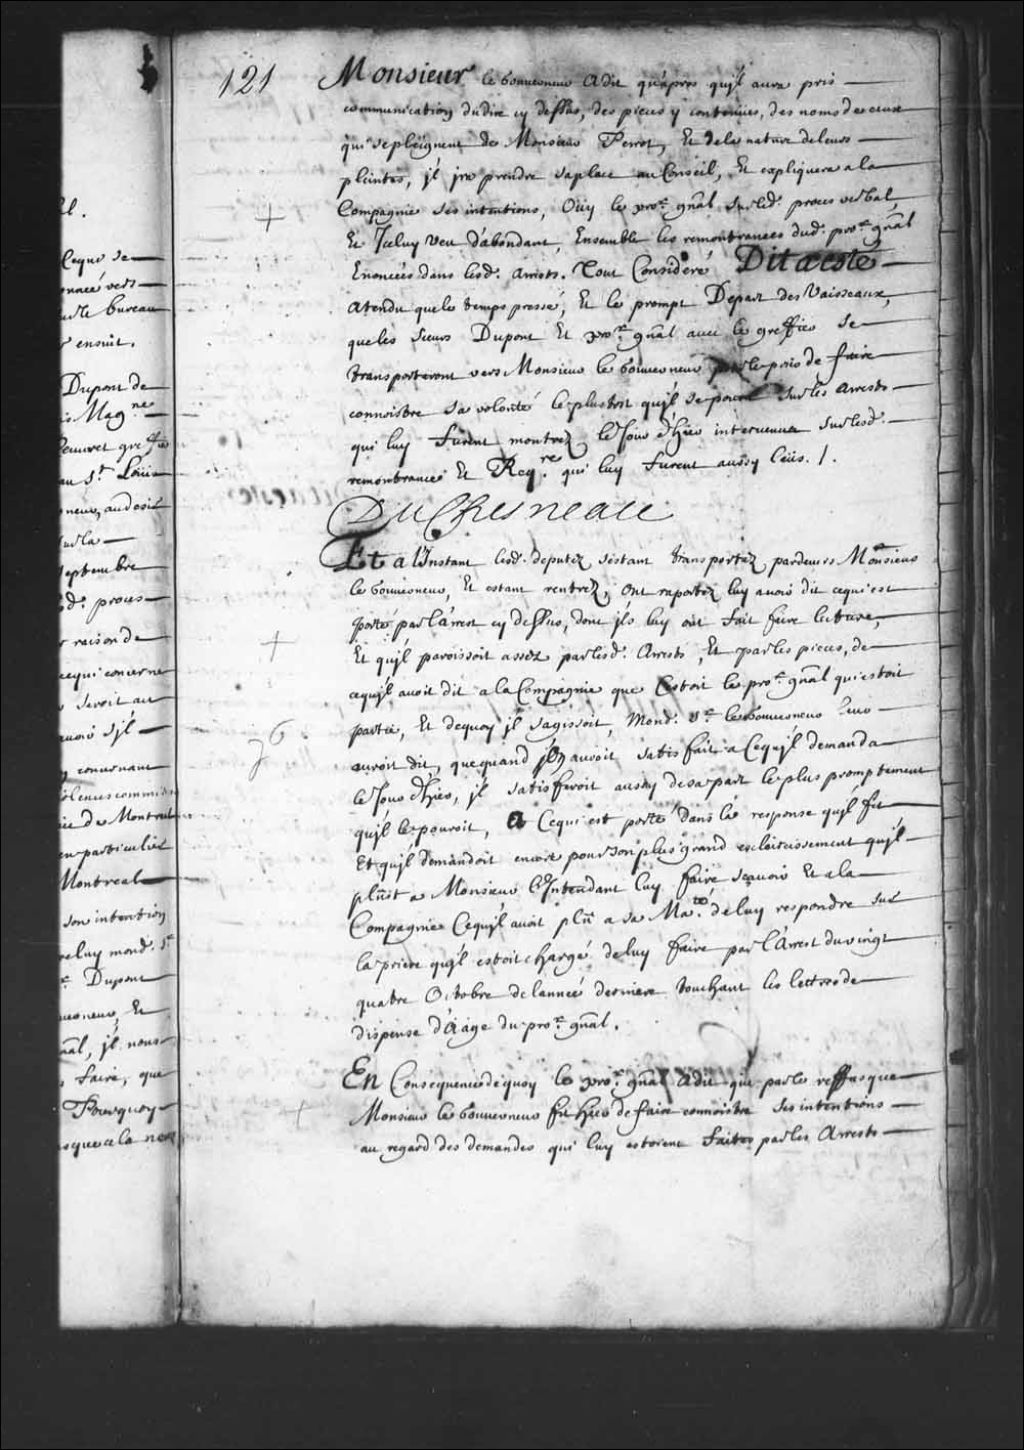 el.
Ce que se
onnée vers
bureau
ensuit.
Dupont de
Magne
Peuvret greffier
au St. Louis
neur, au desir
sur la
septembre
d. procès
raison de
ce qui concerne
seroit au
s'jl
concernant
violences commi
de Montreal
en particulier
Montreal
son intention
celuy mond. Sr.
Dupont
uerneur, Et
nal, jl nous
faire, que
Pourquoy
121
Monsieur le Gouuerneur a dit qu'apres qu'jl aura pris
communication dudire cy dessus, des pieces y contenues, des noms de ceux
qui se pleignent de Monsieur Perrot, Et de la nature de leurs
pleintes, jl jra prendre sa place au Conseil, Et expliquera a la
Compagnie ses intentions, Ouy le pror. gnal sur led. proces verbal,
Et Iceluy veu d'abondant, Ensemble les remontrances dud. pror. gnal
Enoncées dans lesd. arrests. Tout Consideré Dit a esté
Atendu que le temps presse, Et le prompt Depart des Vaisseaux,
que les Sieurs Dupont Et pror. gnal auec le greffier se
transporteront vers Monsieur le Gouuerneur pour le prier de faire
connoistre sa volonté le plustost qu'jl se pourra sur les arrests
qui luy furent montrez le Jour d'hier interuenus sur lesd.
remontrances Et Reqre. qui luy furent aussy leües. /.
DuChesneau
Et a l'Instant lesd. deputez s'estant transportez pardeuers Monsieur
le Gouuerneur, Et estant rentrez, Ont raporté luy auoir dit ce qui est
porté par l'arrest cy dessus, dont jls luy ont fait faire lecture,
Et qu'jl paroissoit assez par lesd. Arrests, Et par les pieces, de
ce qu'jl auoit dit a la Compagnie que C'estoit le pror. gnal qui estoit
partie, Et dequoy jl s'agissoit, Mond. Sr. le Gouuerneur leur
auroit dit, que quand jl auroit satisfait a Ce qu'jl demanda
le Jour d'hier, jl satisferoit aussy de sa part le plus promptement
qu'jl le pouroit, Ce qui est porté dans la response qu'jl fit
Et qu'jl demandoit encore pour son plus grand esclaircissement qu'jl
plust a Monsieur l'Intendant luy faire sçauoir Et a la
Compagnie Ce qu'jl auoit plû a sa Mate. de luy respondre sur
la priere qu'jl estoit chargé de luy faire par l'Arrest du vingt
quatre Octobre de l'année derniere touchant les lettres de
dispense d'aage du pror. gnal.
En Consequence de quoy le pror. gnal a dit que par le reffus que
Monsieur le Gouuerneur fit hier de faire connoistre ses intentions
au regard des demandes qui luy estoient faites par les Arrests